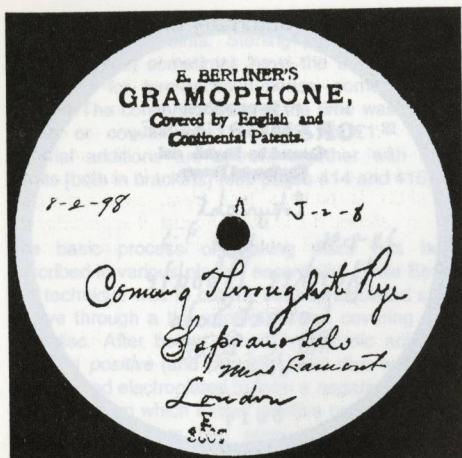 E. BERLINER'S
GRAMOPHONE,
Covered by English and
Continental Patents.
8-2-98 A J-2-8
Coming Through th Rye
Soprano Solo
Miss Lamont
London
E